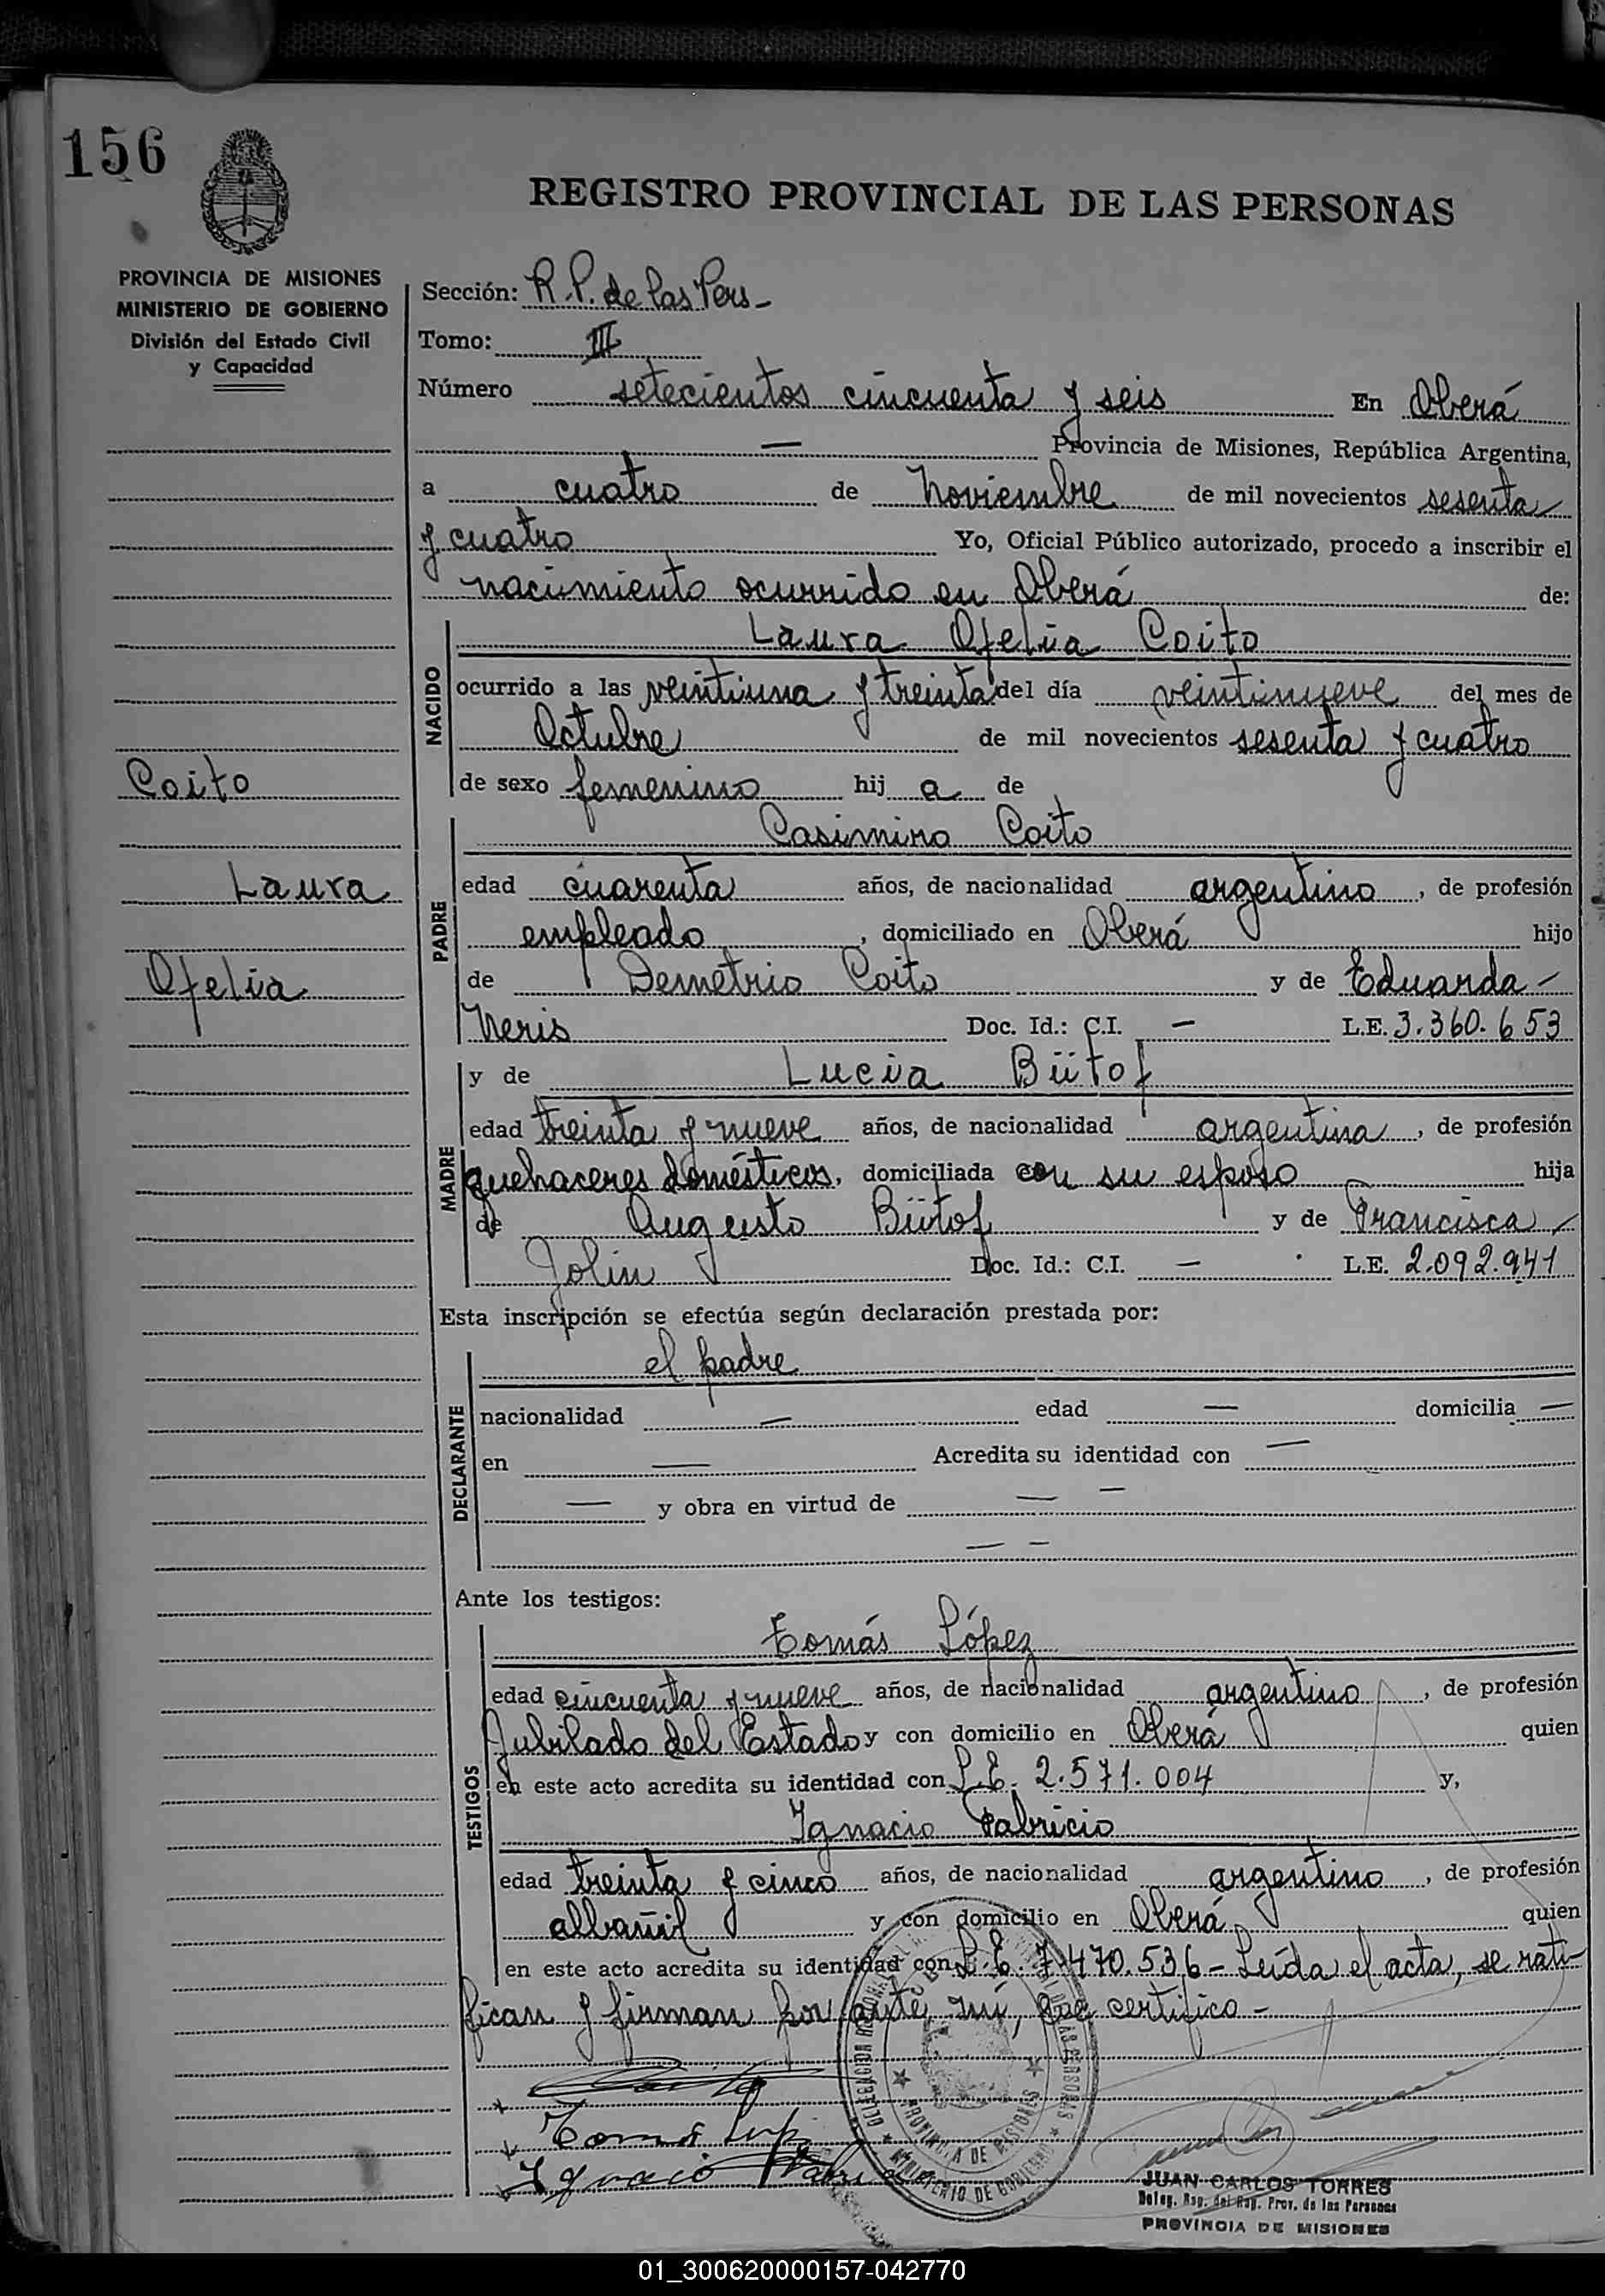 156
REGISTRO PROVINCIAL DE LAS PERSONAS
PROVINCIA DE MISIONES
MINISTERIO DE GOBIERNO
División del Estado Civil
y Capacidad
Sección: R.P. de las Pers-
Tomo: III
Número setecientos cincuenta y seis En Oberá
— Provincia de Misiones, República Argentina,
a cuatro de Noviembre de mil novecientos sesenta
y cuatro Yo, Oficial Público autorizado, procedo a inscribir el
nacimiento ocurrido en Oberá de:
NACIDO
Laura Ofelia Coito
ocurrido a las veintiuna y treinta del día veintinueve del mes de
Octubre de mil novecientos sesenta y cuatro
de sexo femenino hij a de
Coito
Laura
Ofelia
PADRE
Casimiro Coito
edad cuarenta años, de nacionalidad argentino, de profesión
empleado, domiciliado en Oberá hijo
de Demetrio Coito y de Eduarda -
Neris Doc. Id.: C.I. — L.E. 3.360.653
MADRE
y de Lucia Bütof
edad treinta y nueve años, de nacionalidad argentina, de profesión
quehaceres domésticos, domiciliada con su esposo hija
de Augusto Bütof y de Francisca
Jolin Doc. Id.: C.I. — L.E. 2.092.941
Esta inscripción se efectúa según declaración prestada por:
DECLARANTE
el padre
nacionalidad — edad — domicilia —
en — Acredita su identidad con —
— y obra en virtud de — —
— —
Ante los testigos:
TESTIGOS
Tomás López
edad cincuenta y nueve años, de nacionalidad argentino, de profesión
Jubilado del Estado y con domicilio en Oberá quien
en este acto acredita su identidad con L.E. 2.571.004 y,
Ignacio Fabricio
edad treinta y cinco años, de nacionalidad argentino, de profesión
albañil y con domicilio en Oberá quien
en este acto acredita su identidad con L.E. 7.470.536 - Leída el acta, se rati-
fican y firman por ante mí, que certifico -
Coito
Tomás
Ignacio
PROVINCIA DE MISIONES
MINISTERIO DE GOBIERNO
JUAN CARLOS TORRES
Deleg. Rsp. del Reg. Prov. de las Personas
PROVINCIA DE MISIONES
01_300620000157-042770